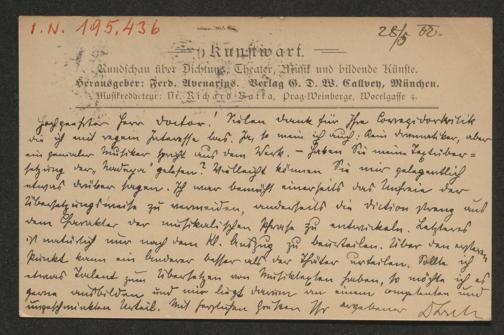 I.N. 195,436
28/5 00.
Kunstwart.
Rundschau über Dichtung, Theater, Musik und bildende Künste.
Herausgeber: Ferd. Avenarius. Verlag G. D. W. Callwey, München.
Musikredacteur: Dr. Richard Batka, Prag-Weinberge, Wocelgasse 4.
Hochgeehrter Herr Doctor! Vielen Dank für Ihre Corregidorkritik
die ich mit regem Interesse las. Ja, so mein ich auch: Kein Dramatiker, aber
ein genialer Musiker spricht aus dem Werk. – Haben Sie meine Textüber-
setzung der gelesen? Vielleicht können Sie mir gelegentlich
etwas darüber sagen. Ich war bemüht einerseits das Unfreie der
Übersetzungsweise zu vermeiden, anderseits die Diction streng aus
dem Charakter der musikalischen Phrase zu entwickeln. Letzteres
ist natürlich nur nach dem Kl. Auszug zu beurteilen. Über den ersteren
Punkt kann ein Anderer besser als der Thäter urteilen. Sollte ich
etwas Talent zum Übersetzen von Musiktexten haben, so möchte ich es
gerne ausbilden und mir liegt darum an einem competenten und
ungeschminkten Urteil. Mit herzlichen Grüßen Ihr ergebener